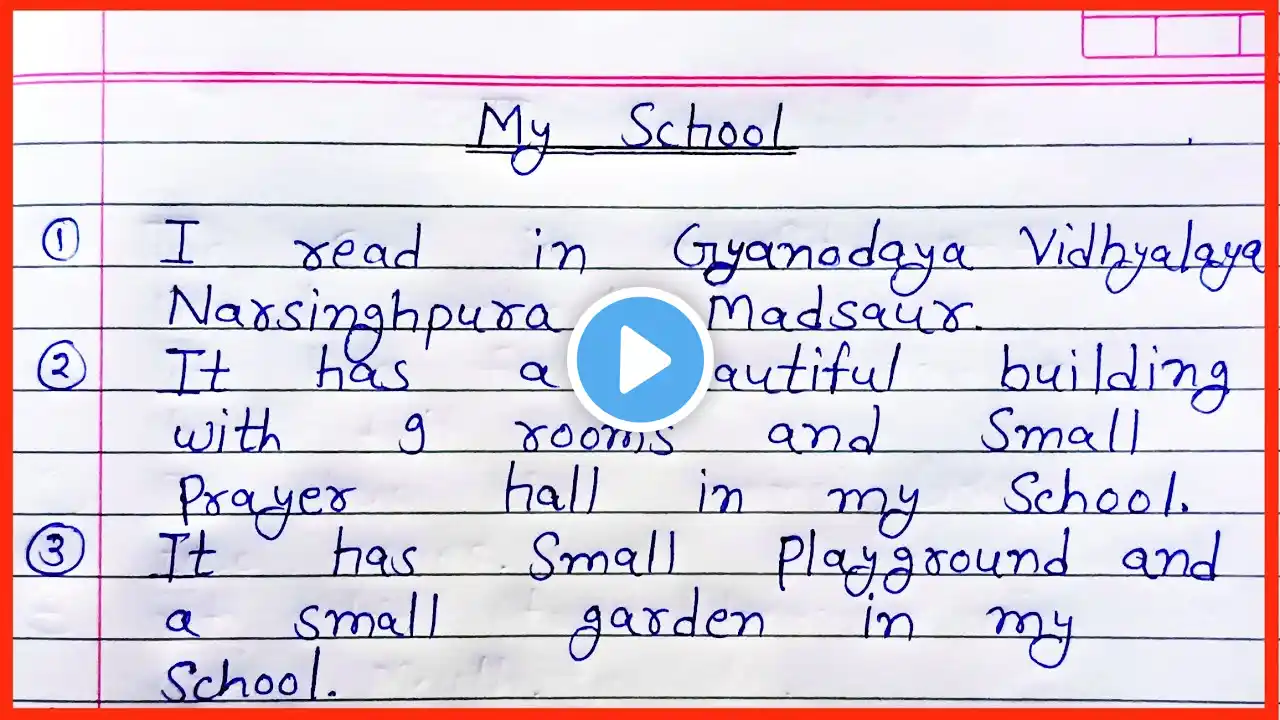 My School
① I read in Gyanodaya Vidhyalaya
Narsinghpura Madsaur.
② It has a autiful building
with 9 rooms and Small
Prayer hall in my School.
③ It has Small Playground and
a small garden in my
School.